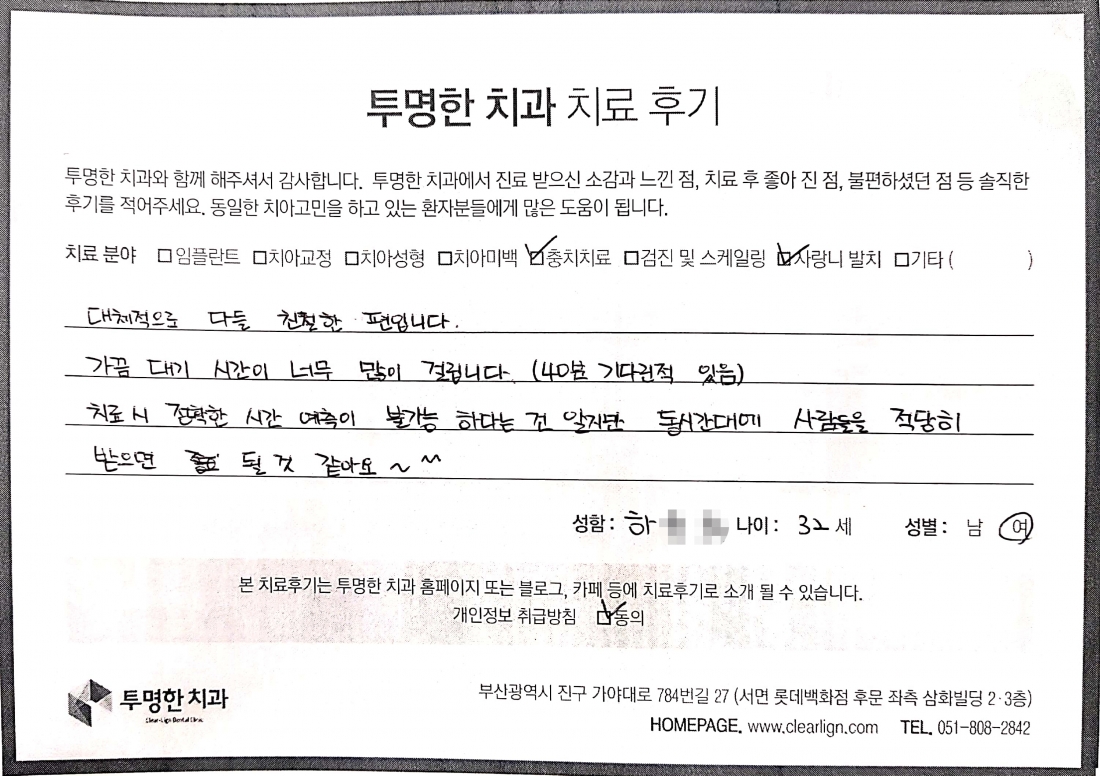 투명한 치과 치료 후기
투명한 치과와 함께 해주셔서 감사합니다. 투명한 치과에서 진료 받으신 소감과 느낀 점, 치료 후 좋아 진 점, 불편하셨던 점 등 솔직한
후기를 적어주세요. 동일한 치아고민을 하고 있는 환자분들에게 많은 도움이 됩니다.
치료 분야 □임플란트 □치아교정 □치아성형 □치아미백 ☑충치치료 □검진 및 스케일링 ☑사랑니 발치 □기타 ( )
대체적으로 다들 친절한 편입니다.
가끔 대기 시간이 너무 많이 걸립니다. (40분 기다린적 있음)
치료 시 정확한 시간 예측이 불가능 하다는 건 알지만 동시간대에 사람들을 적당히
받으면 될 것 같아요 ~ ^^
성함 : 하 나이 : 32 세 성별 : 남 여
본 치료후기는 투명한 치과 홈페이지 또는 블로그, 카페 등에 치료후기로 소개 될 수 있습니다.
개인정보 취급방침 ☑동의
투명한 치과
Clear-Lign Dental Clinic
부산광역시 진구 가야대로 784번길 27 (서면 롯데백화점 후문 좌측 삼화빌딩 2·3층)
HOMEPAGE. www.clearlign.com TEL. 051-808-2842